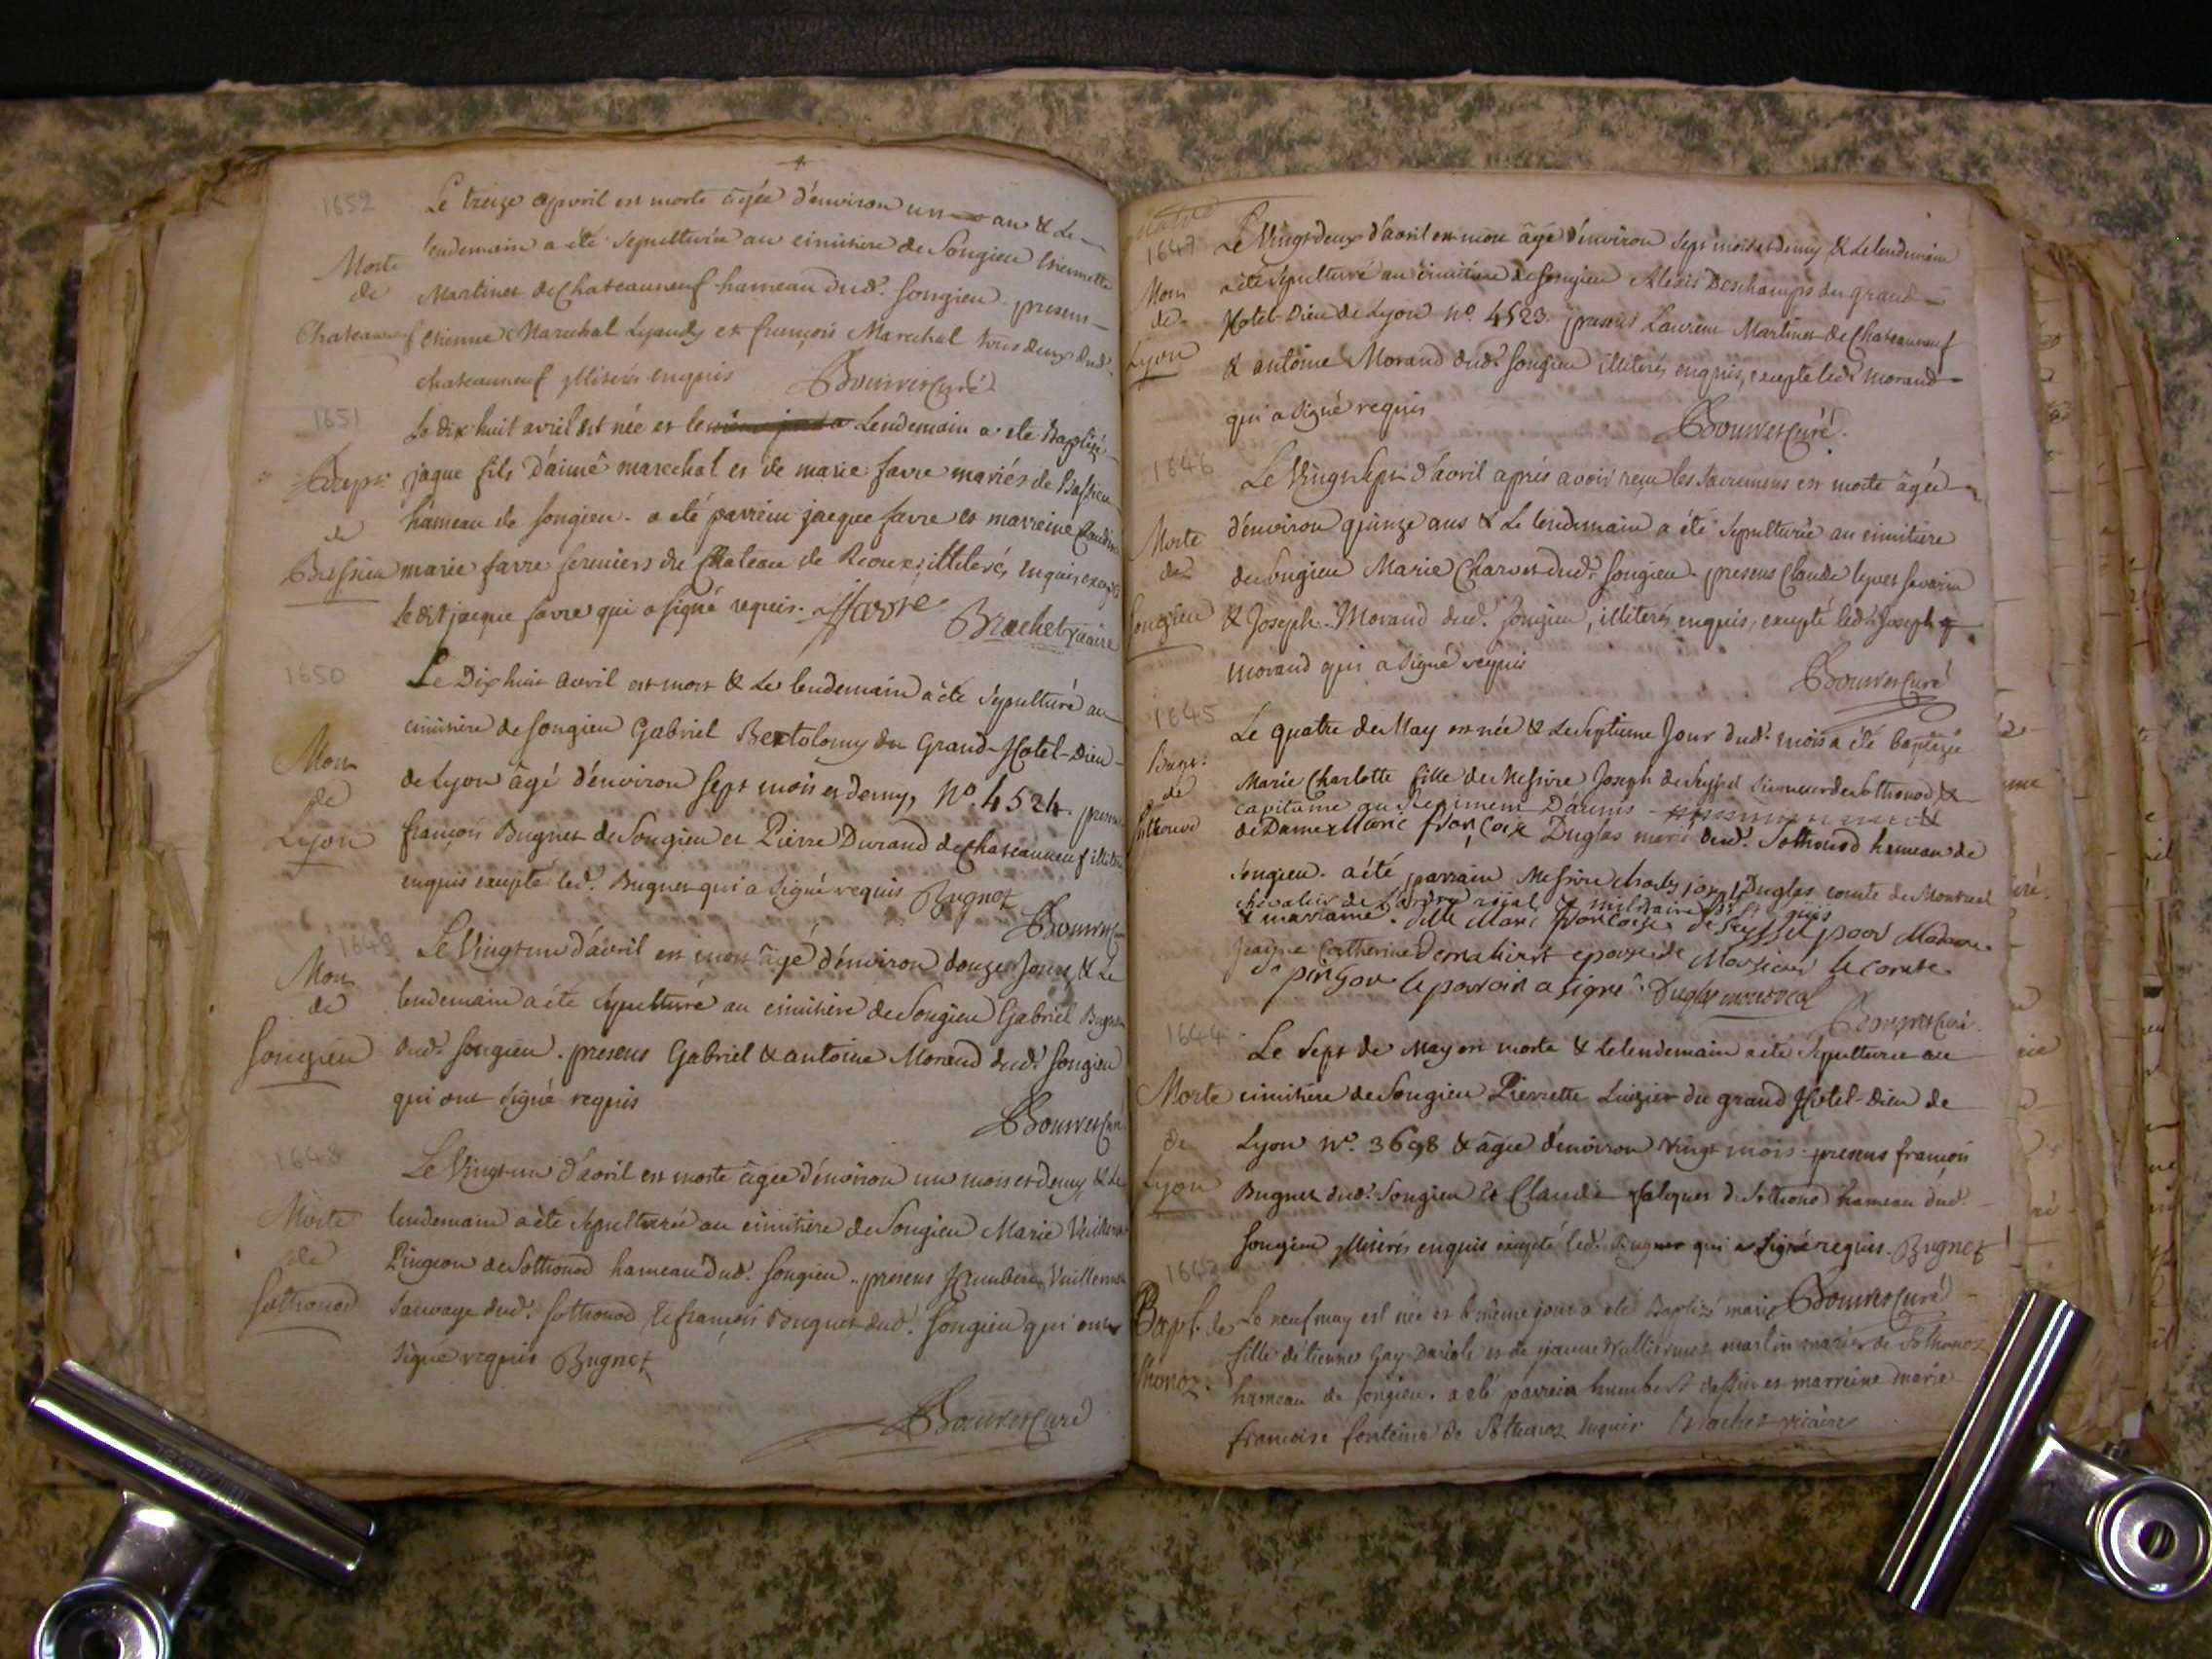 1652
Le treize apvril est morte âgée d'environ un an & Le
Morte lendemain a été sepulturée au cimitiere de Songieu
de Martinet de Chateauneuf hameau dud. Songieu. presens
Chateauneuf Etienne Marechal Lyaudy et françois Marechal tous deux dud.
chateauneuf illiterés enquis Bouvet Curé
1651
Le dix huit avril est née et le Lendemain a ete Baptisé
Bapt. jaque fils d'aimé marechal et de marie favre mariés de Bassieu
de hameau de songieu. a eté parrein jacque favre et marreine Claudine
Bassieu marie favre fermiers du Chateau de illiterés, enquis, excepté
le dit jacque favre qui a signé requis. Favre Brochet vicaire
1650
Le Dix huit avril est mort & Le lendemain a été sepulturé au
cimitiere de songieu Gabriel Bertolomy du Grand-Hotel-Dieu
Mort de Lyon âgé d'environ sept mois et demy, N°. 4524. presens
de françois Bugnet de Songieu et Pierre Durand de chateauneuf
Lyon enquis excepté led. Bugnet qui a signé requis Bugnet
Bouvet
1649
Mort Le Vingt un d'avril est mort âgé d'environ douze Jours, & Le
de lendemain a été sepulturé au cimitiere de Songieu Gabriel Bugnet
Songieu dud. Songieu. presens Gabriel & antoine Morand dud. Songieu
qui ont signé requis
Bouvet Curé
1648
Le Vingt un d'avril est morte âgée d'environ un mois et demy, & Le
Morte lendemain a été sepulturée au cimitiere de Songieu Marie
de Pingeon de Sothonod hameau dud. Songieu. presens Humbert Vuillerme
Sothonod Sauvage dud. Sothonod & françois Bugnet dud. Songieu qui ont
signé requis Bugnet
Bouvet Curé
1647
Le Vingt deux d'avril est mort âgé d'environ sept mois et demy & Le lendemain
Mort a été sepulturé au cimitiere de Songieu Alexis Deschamps du grand
de Hotel-Dieu de Lyon N°. 4523. presens Laurent Martinet de Chateauneuf
Lyon & antoine Morand dud. Songieu illiterés enquis, excepté led. Morand
qui a signé requis
Bouvet Curé
1646
Le Vingt sept d'avril aprés avoir reçu les sacremens est morte âgée
Morte d'environ quinze ans & Le lendemain a été sepulturée au cimitiere
de de Songieu Marie Charvet dud. Songieu. presens Claude
Songieu & Joseph Morand dud. Songieu, illiterés enquis, excepté led. Joseph
morand qui a signé requis
Bouvet Curé
1645
Le quatre de May est née & Le septieme Jour dud. mois a été baptizée
Bapt. Marie Charlotte fille de Messire Joseph de Seyssel Seigneur de Sothonod &
de capitaine au Regiment D'aunis
Sothonod de Dame Marie françoise Duglas marié dud. Sothonod hameau de
Songieu. a été parrain Messire charles Duglas comte de Montreal
chevalier de l'ordre roial & militaire de St. Louis
& marraine. delle Marie françoise de Seyssel pour Madame
Catherine epouse de Monsieur le comte
le parrain a signé. Duglas montreal
Bouvet Curé.
1644
Le Sept de May est morte & le lendemain a eté sepulturée au
Morte cimitiere de Songieu Pierrette Luizier du grand Hotel-Dieu de
de Lyon N°. 3698 & âgée d'environ vingt mois. presens françois
Lyon Bugnet dud. Songieu & Claude de Sothonod hameau dud.
Songieu illiterés enquis excepté led. Bugnet qui a signé requis. Bugnet
Bouvet Curé
Bapt. de Le neuf may est née et le même jour a eté Baptisé marie
fille d'etienne Gay et de martin mariés de Sothonoz
hameau de songieu. a eté parrein humbert et marreine marie
francoise fonteine de Sothonoz enquis Brochet vicaire